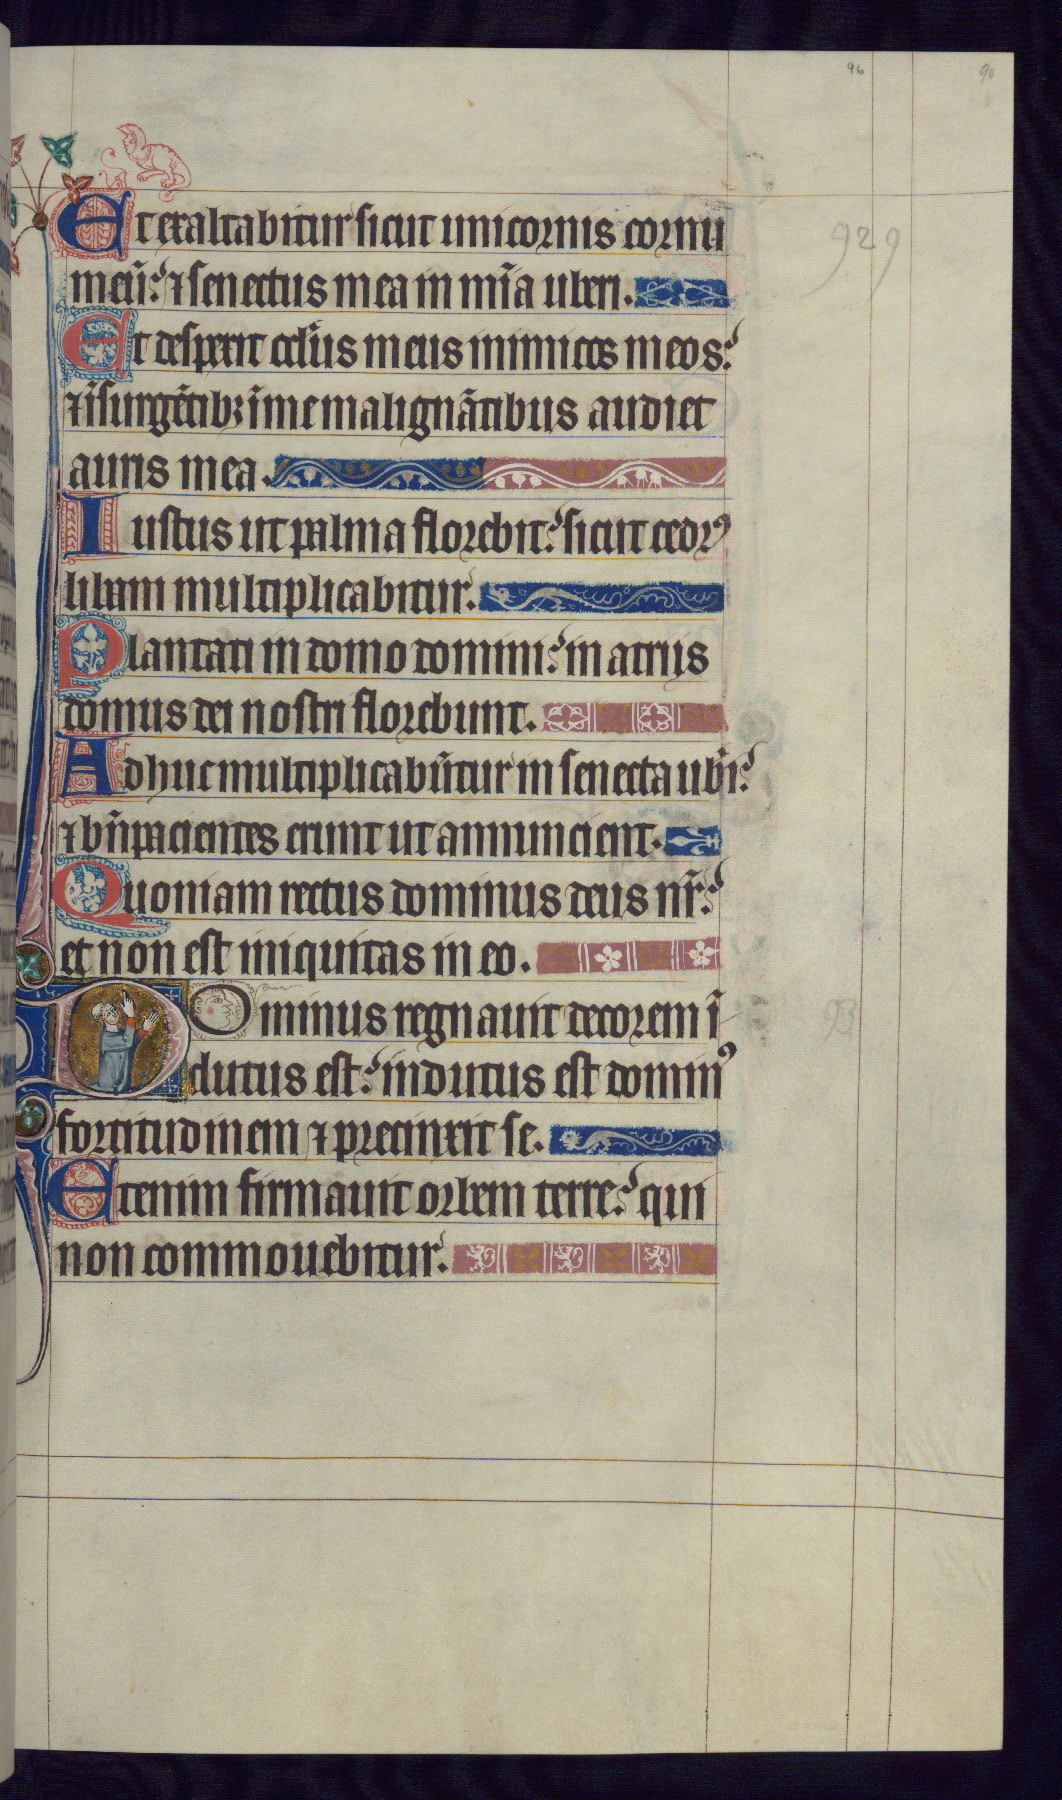 96
90
Et exaltabitur sicut unicornis cornu
929
meū: ⁊ senectus mea in mīa uberi.
Et despexit oculus meus inimicos meos:
⁊ īsurgētibꝫ ī me malignātibus audiet
auris mea.
Iustus ut palma florebit: sicut cedrꝰ
libani multiplicabitur.
Plantati in domo domini: in atriis
domus dei nostri florebunt.
Adhuc multiplicabūtur in senecta ub̄i:
⁊ bn̄ pacientes erunt ut annuncient.
Quoniam rectus dominus deus nr̄:
et non est iniquitas in eo.
Dominus regnauit decorem ī
93
dutus est: indutus est dominꝰ
fortitudinem ⁊ precinxit se.
Etenim firmauit orbem terre: qui
non commouebitur.